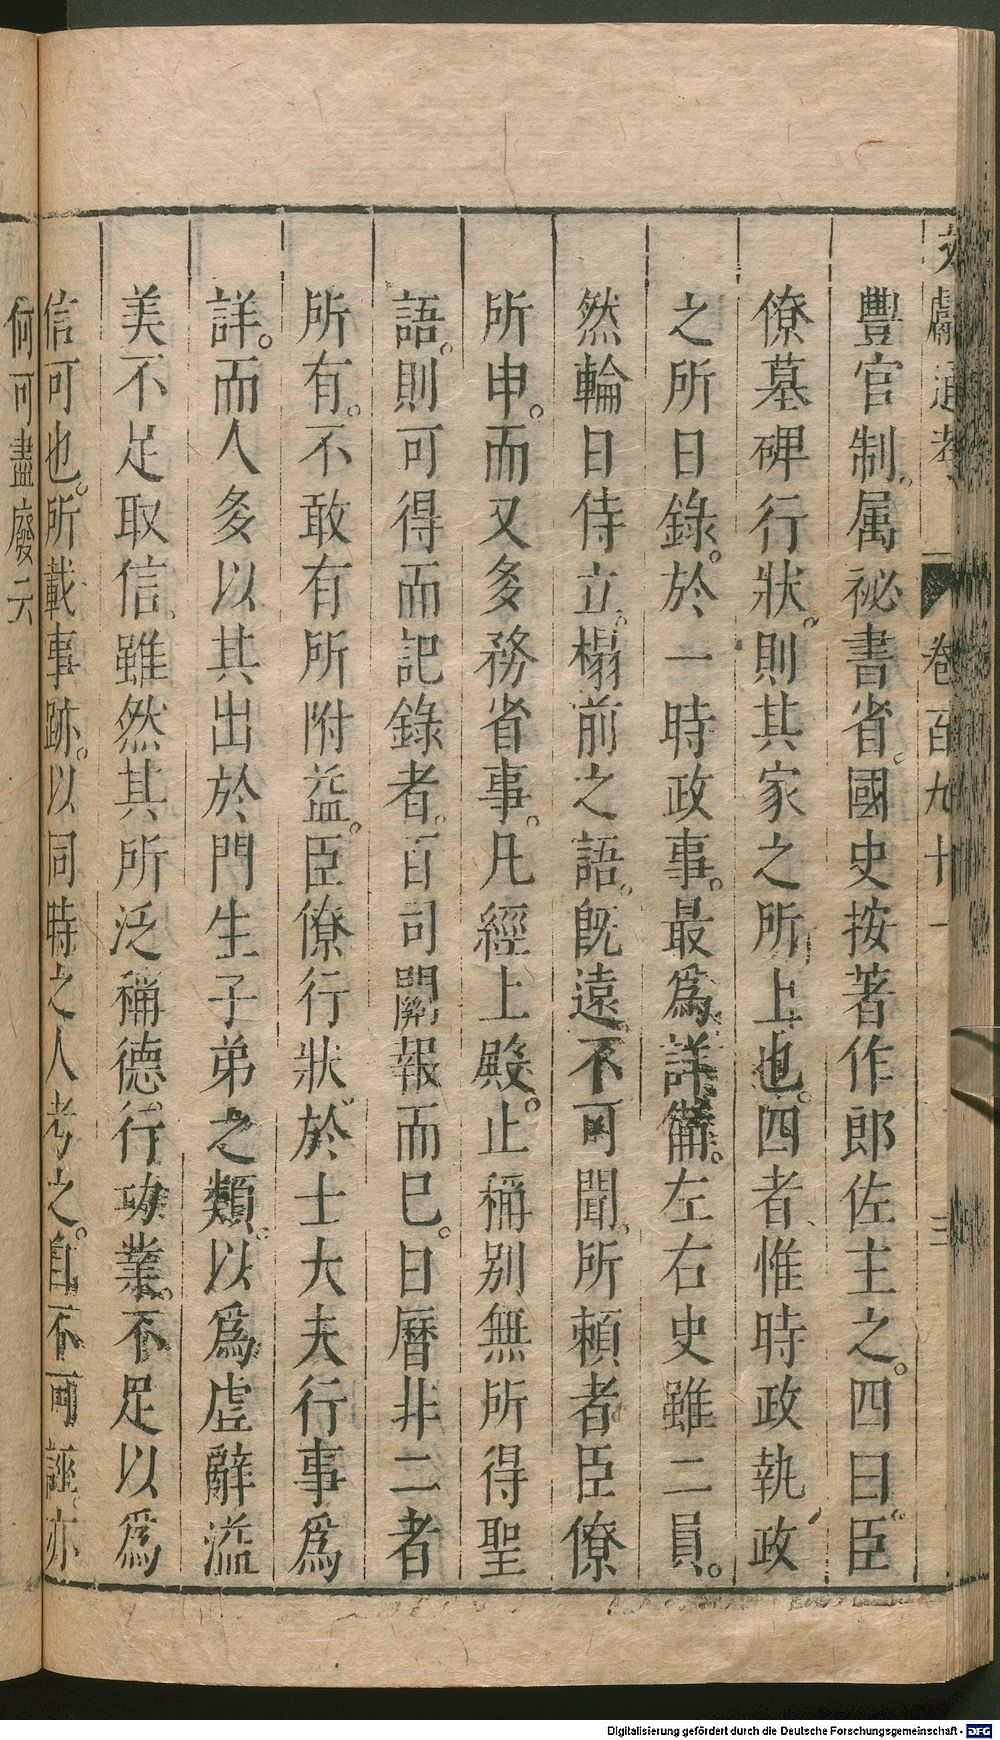 文獻通考 卷百九十一 三
豐官制。属祕書省。國史按著作郎佐主之。四曰。臣
僚墓碑行狀。則其家之所上也。四者、惟時政執政
之所日錄。於一時政事。最爲詳僃。左右史雖二員。
然輪日侍立。榻前之語。旣遠不可聞。所頼者臣僚
所申。而又多務省事。凡經上殿。止稱别無所得聖
語。則可得而記錄者。百司關報而已。日曆非二者
所有。不敢有所附益。臣僚行狀於士大夫行事爲
詳。而人多以其出於門生子弟之類。以爲虗辭溢
美不足取信。雖然其所泛稱德行功業。不足以爲
信可也。所載事跡。以同時之人考之。自不可誣。亦
何可盡廢云
Digitalisierung gefördert durch die Deutsche Forschungsgemeinschaft - DFG